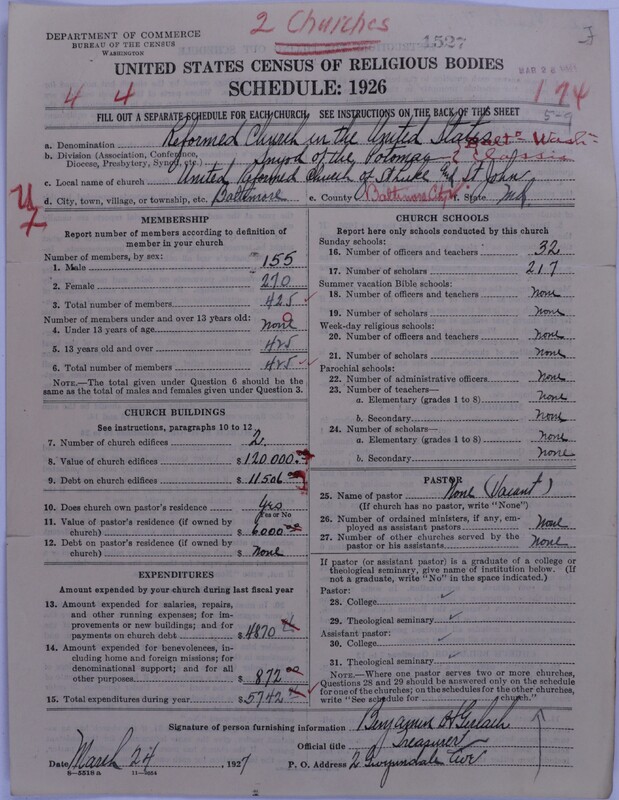 2 Churches
DEPARTMENT OF COMMERCE
BUREAU OF THE CENSUS
WASHINGTON
1527
UNITED STATES CENSUS OF RELIGIOUS BODIES
SCHEDULE: 1926
4 4
174
FILL OUT A SEPARATE SCHEDULE FOR EACH CHURCH, SEE INSTRUCTIONS ON THE BACK OF THIS SHEET
5-9
a. Denomination Reformed Church in the United States
b. Division (Association, Conference, Diocese, Presbytery, Synod, etc.) Synod of the Potomac Balto Wash. Classis
c. Local name of church United Reformed Church of St Luke and St John
d. City, town, village, or township, etc. Baltimore e. County Baltimore City f. State Md.
MEMBERSHIP
Report number of members according to definition of member in your church
Number of members, by sex:
1. Male 155
2. Female 270
3. Total number of members 425
Number of members under and over 13 years old:
4. Under 13 years of age none
5. 13 years old and over 425
6. Total number of members 425
NOTE.—The total given under Question 6 should be the same as the total of males and females given under Question 3.
CHURCH BUILDINGS
See instructions, paragraphs 10 to 12
7. Number of church edifices 2
8. Value of church edifices $120000.
9. Debt on church edifices $11506
10. Does church own pastor's residence Yes
Yes or No
11. Value of pastor's residence (if owned by church) $6000 00
12. Debt on pastor's residence (if owned by church) $ none
EXPENDITURES
Amount expended by your church during last fiscal year
13. Amount expended for salaries, repairs, and other running expenses; for improvements or new buildings; and for payments on church debt $4870
14. Amount expended for benevolences, including home and foreign missions; for denominational support; and for all other purposes $872 00
15. Total expenditures during year $5742
CHURCH SCHOOLS
Report here only schools conducted by this church
Sunday schools:
16. Number of officers and teachers 32
17. Number of scholars 217
Summer vacation Bible schools:
18. Number of officers and teachers None
19. Number of scholars None
Week-day religious schools:
20. Number of officers and teachers None
21. Number of scholars None
Parochial schools:
22. Number of administrative officers None
23. Number of teachers—
a. Elementary (grades 1 to 8) None
b. Secondary None
24. Number of scholars—
a. Elementary (grades 1 to 8) None
b. Secondary None
PASTOR
25. Name of pastor None (Vacant)
(If church has no pastor, write "None")
26. Number of ordained ministers, if any, employed as assistant pastors None
27. Number of other churches served by the pastor or his assistants None
If pastor (or assistant pastor) is a graduate of a college or theological seminary, give name of institution below. (If not a graduate, write "No" in the space indicated.)
Pastor:
28. College
29. Theological seminary
Assistant pastor:
30. College
31. Theological seminary
NOTE.—Where one pastor serves two or more churches, Questions 28 and 29 should be answered only on the schedule for one of the churches; on the schedules for the other churches, write "See schedule for church."
Signature of person furnishing information Benjamin A Gerlach
Official title Treasurer
Date March 24, 1927 P. O. Address 2 Gwynndale Ave
8—5519 a